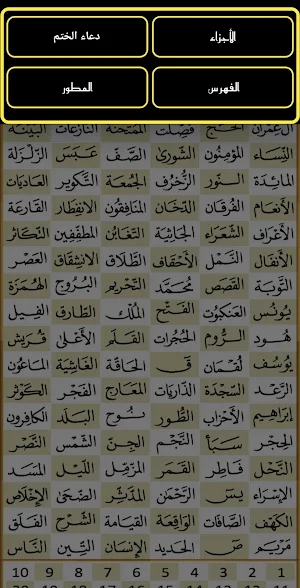 الأجزاء دعاء الختم
الفهرس المطور
آل عمران الحج فصلت الممتحنة النازعات البينة
النساء المؤمنون الشورى الصف عبس الزلزلة
المائدة النور الزخرف الجمعة التكوير العاديات
الأنعام الفرقان الدخان المنافقون الانفطار القارعة
الأعراف الشعراء الجاثية التغابن المطففين التكاثر
الأنفال النمل الأحقاف الطلاق الانشقاق العصر
التوبة القصص محمد التحريم البروج الهمزة
يونس العنكبوت الفتح الملك الطارق الفيل
هود الروم الحجرات القلم الأعلى قريش
يوسف لقمان ق الحاقة الغاشية الماعون
الرعد السجدة الذاريات المعارج الفجر الكوثر
إبراهيم الأحزاب الطور نوح البلد الكافرون
الحجر سبأ النجم الجن الشمس النصر
النحل فاطر القمر المزمل الليل المسد
الإسراء يس الرحمن المدثر الضحى الإخلاص
الكهف الصافات الواقعة القيامة الشرح الفلق
مريم ص الحديد الإنسان التين الناس
1 2 3 4 5 6 7 8 9 10